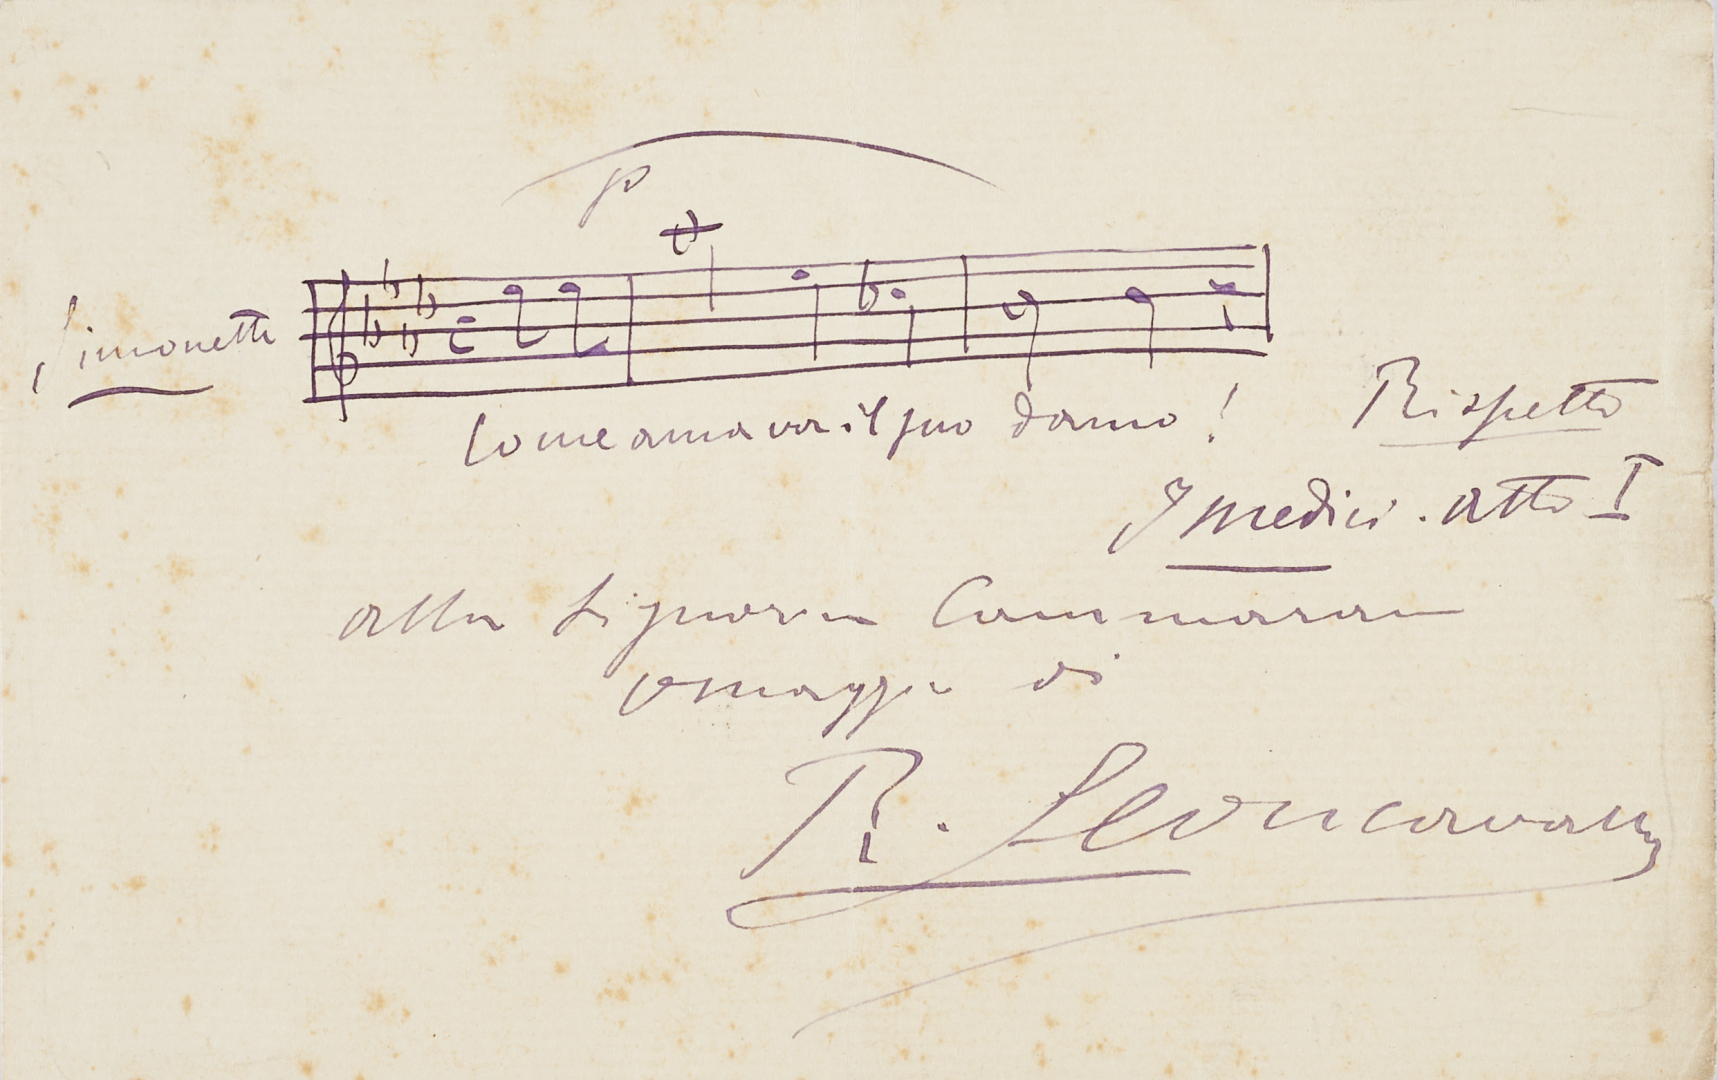 p
Simonetta
Come amava il suo damo!
Rispetto
I medici. atto I
alla Signora Cammarano
omaggio di
R. Leoncavallo